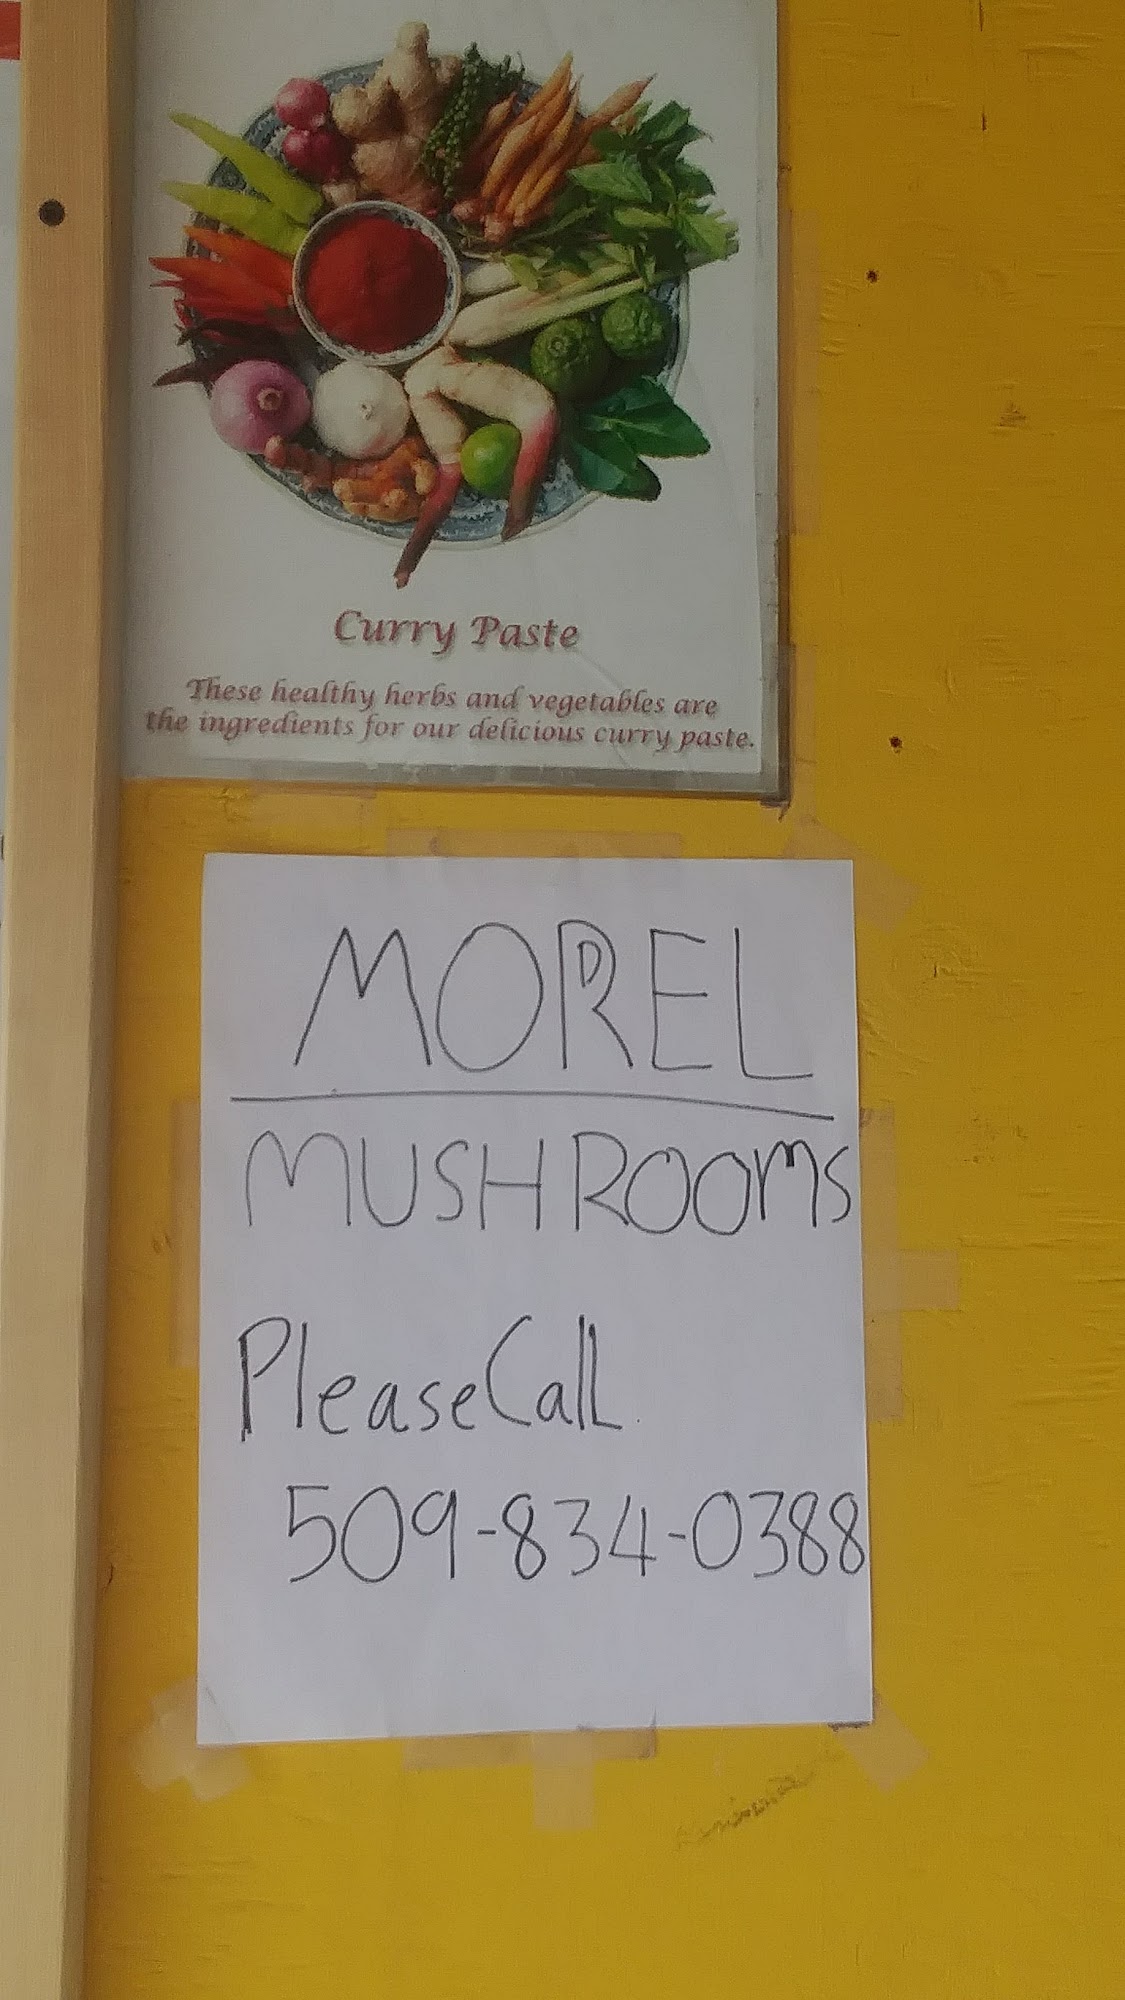 Curry Paste
These healthy herbs and vegetables are
the ingredients for our delicious curry paste.
MOREL
MUSHROOMS
Please Call
509-834-0388